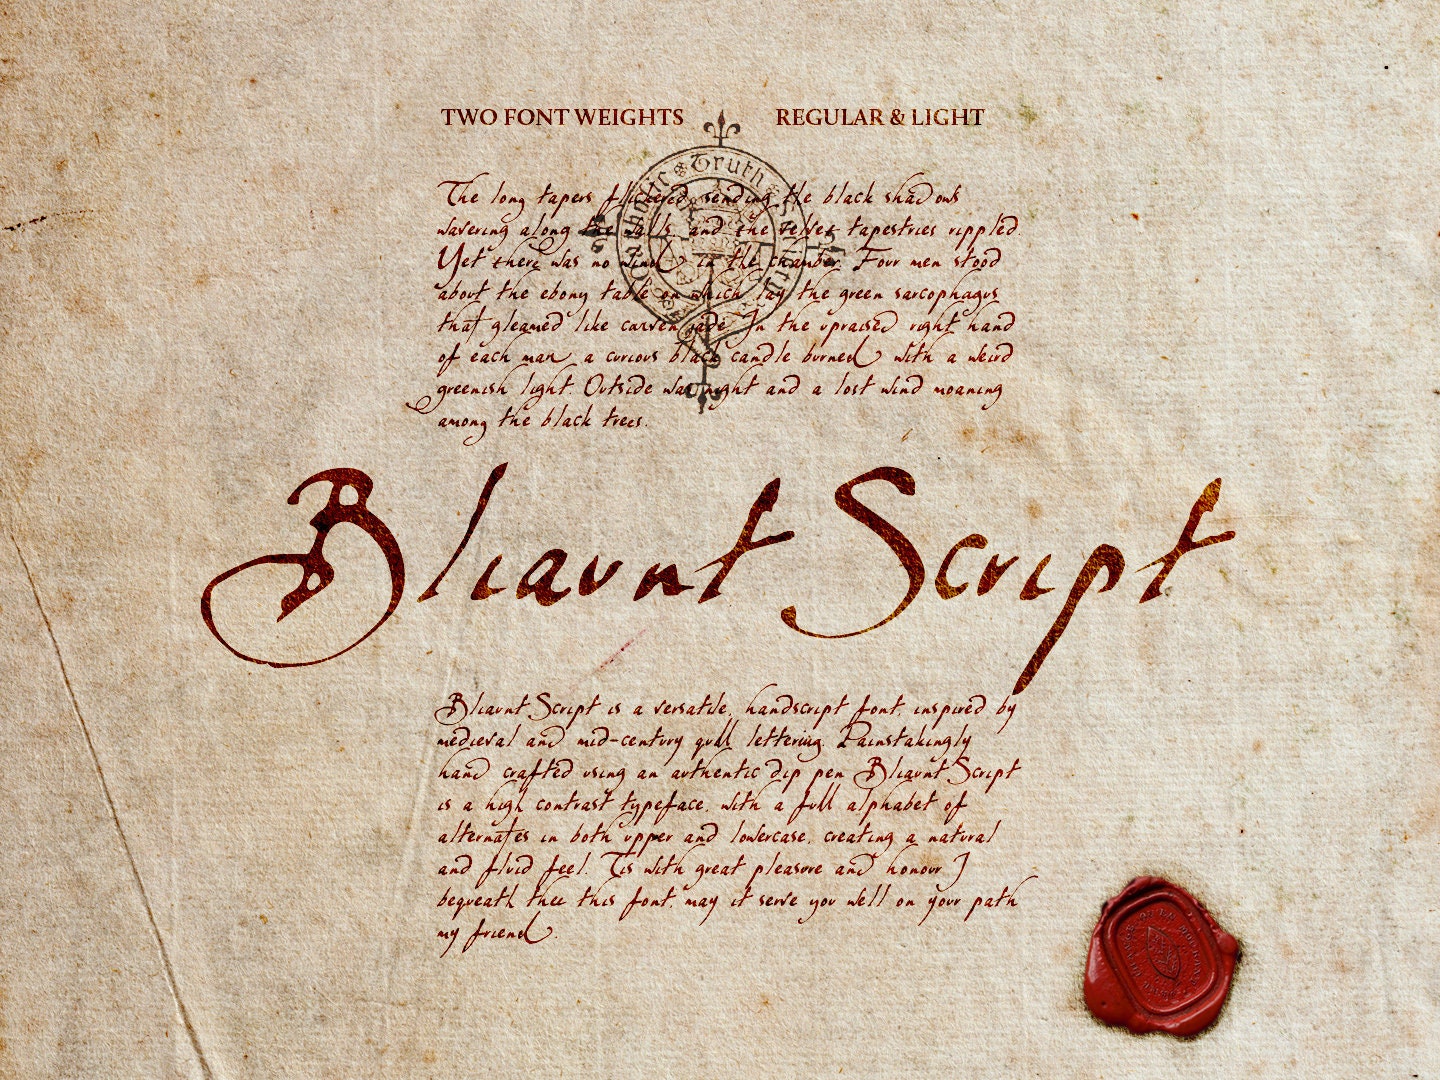 TWO FONT WEIGHTS REGULAR & LIGHT
Catholic Truth Society
The long tapers flickered, sending the black shadows
wavering along the walls, and the velvet tapestries rippled.
Yet there was no wind in the chamber. Four men stood
about the ebony table on which lay the green sarcophagus
that gleamed like carven jade. In the upraised right hand
of each man a curious black candle burned with a weird
greenish light. Outside was night and a lost wind moaning
among the black trees.
Bliaunt Script
Bliaunt Script is a versatile, handscript font, inspired by
medieval and mid-century quill lettering. Painstakingly
hand crafted using an authentic dip pen Bliaunt Script
is a high contrast typeface, with a full alphabet of
alternates in both upper and lowercase, creating a natural
and fluid feel. Tis with great pleasure and honour I
bequeath thee this font, may it serve you well on your path
my friend.